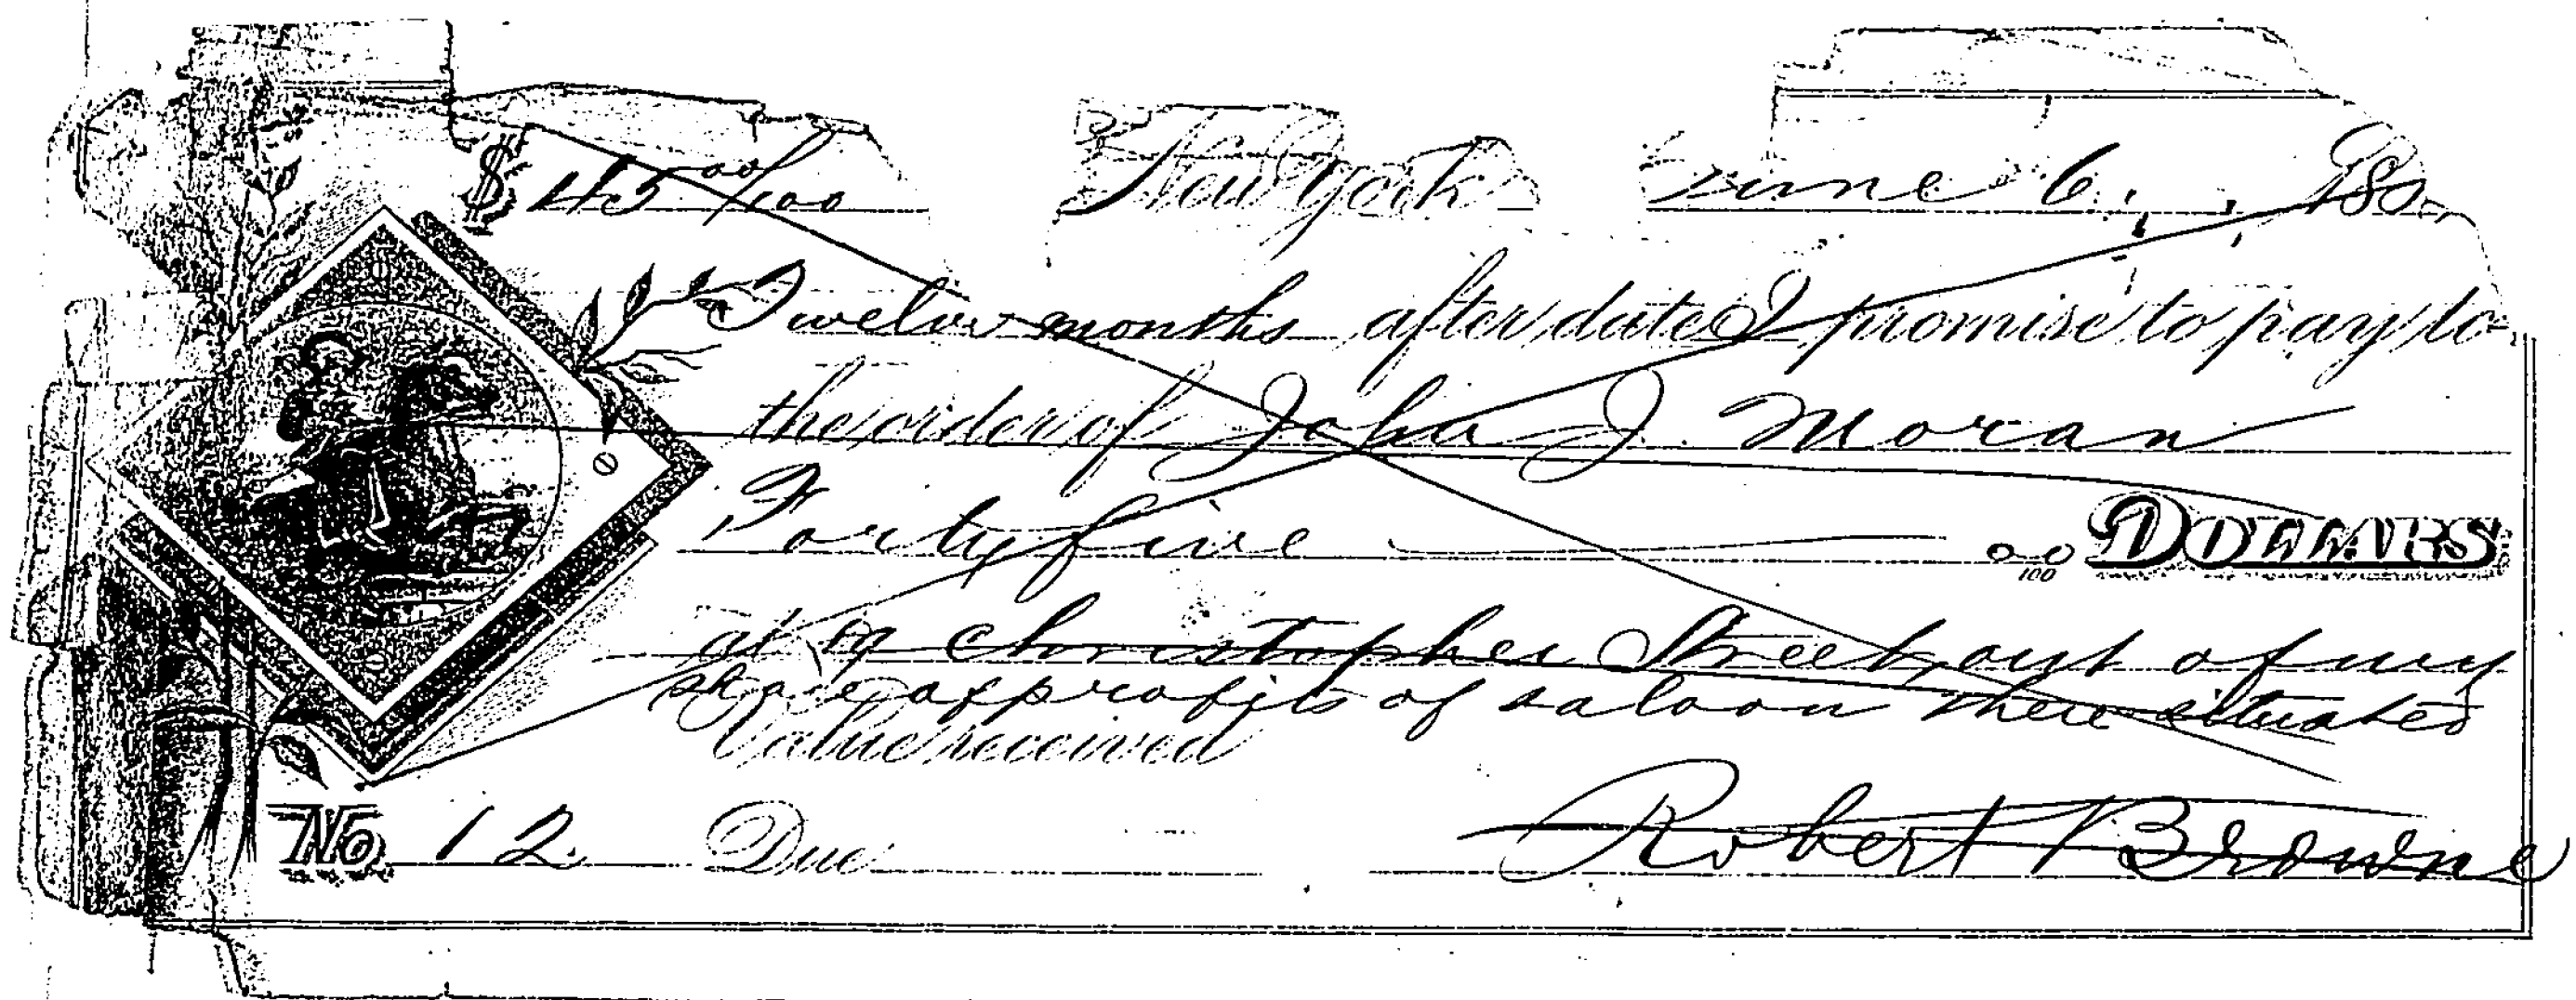 $ 45 00/100 New York June 6, 188
Twelve months after date I promise to pay to
the order of John J. Moran
Forty five 00/100 DOLLARS
at Christopher Street, out of my
share of profits of saloon there situated
Value received
No. 12 Due Robert Browne